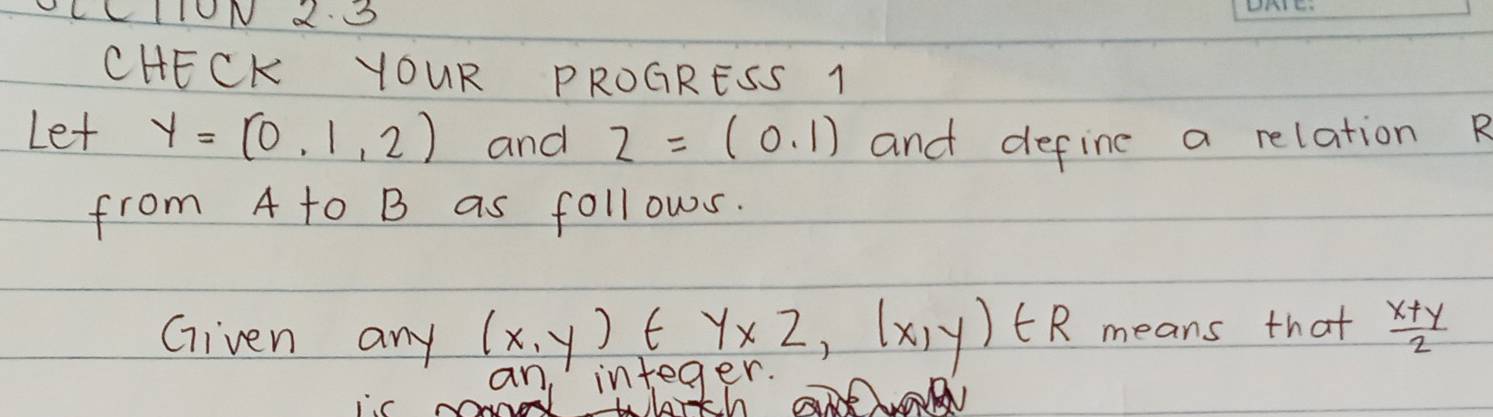 SECTION 2.3
DATE:
CHECK YOUR PROGRESS 1
Let Y = (0,1,2) and Z = (0.1) and define a relation R
from A to B as follows.
Given any (x,y) ∈ Y x Z, (x,y) ∈ R means that x+y/2
an integer.
is which